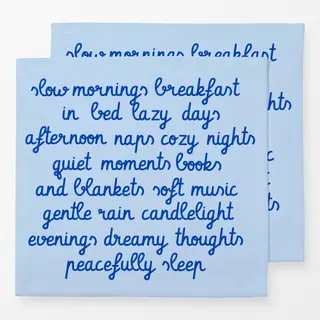 slow mornings breakfast
slow mornings breakfast
in bed lazy days
afternoon naps cozy nights
quiet moments books
and blankets soft music
gentle rain candlelight
evenings dreamy thoughts
peacefully sleep